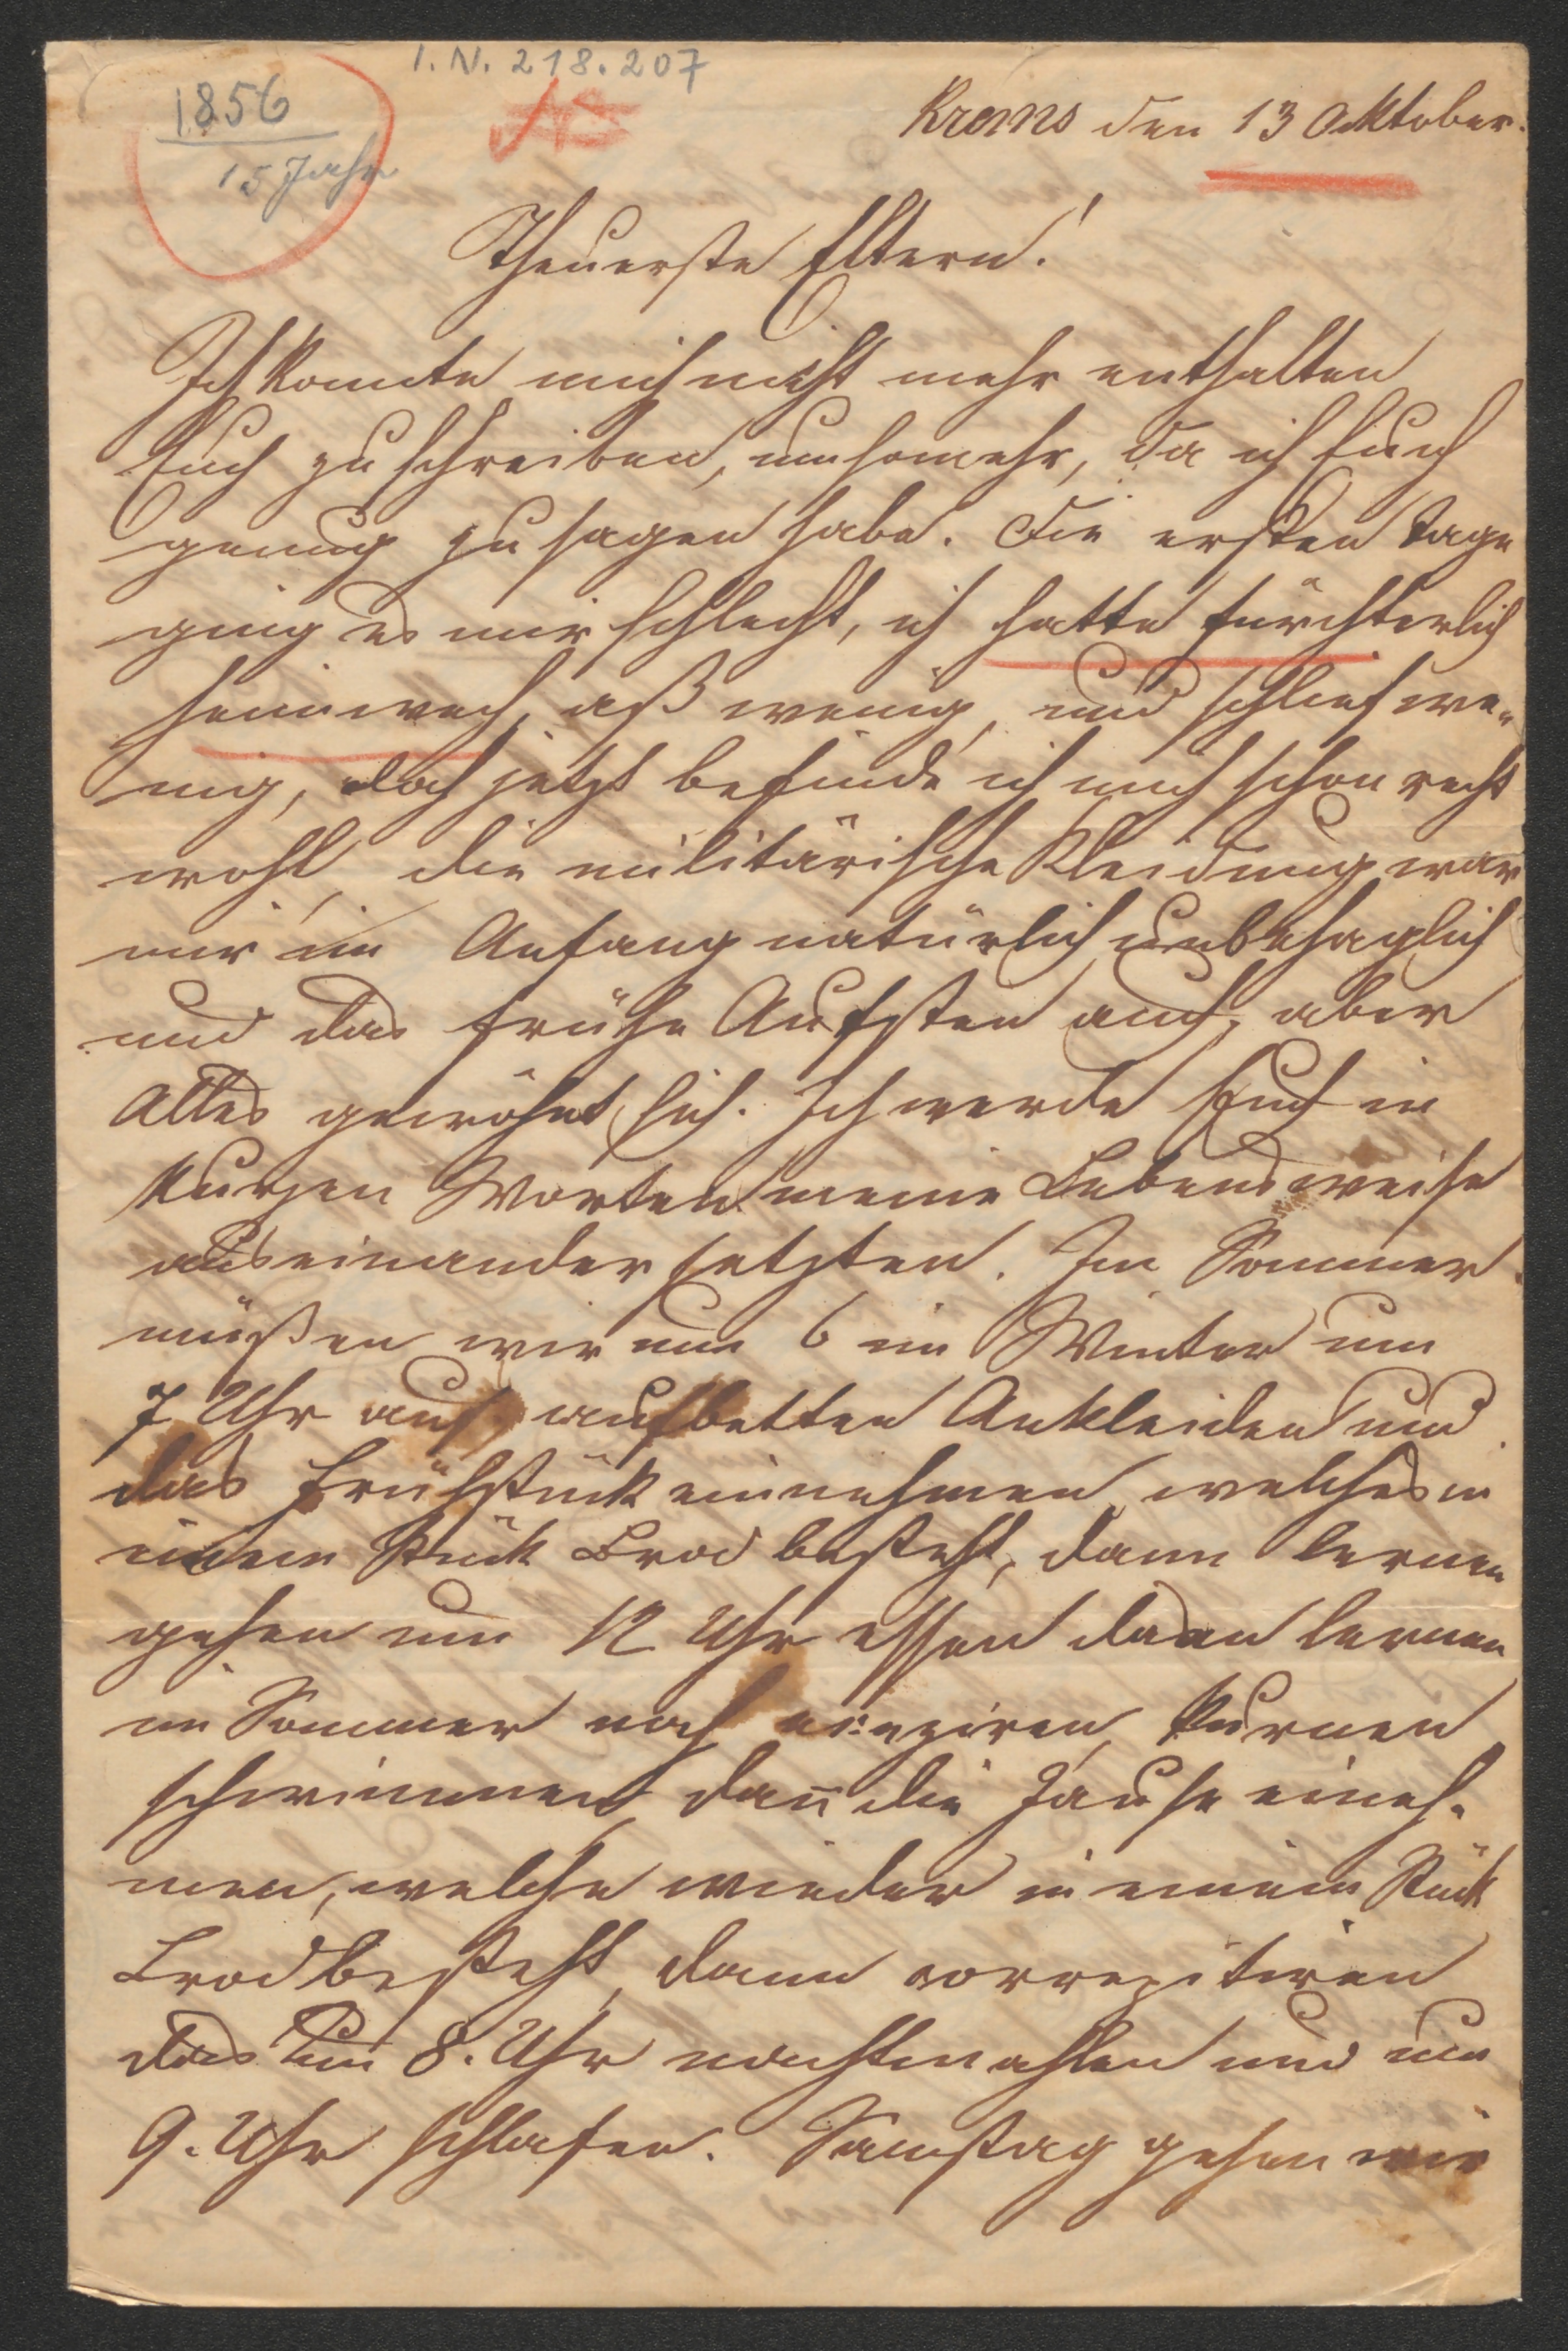 I. N. 218.207
1856
15 Jahr
Krems den 13 Oktober.
Theuerste Eltern!
Ich konnte mich nicht mehr enthalten
Euch zu schreiben, umsomehr, da ich Euch
genug zu sagen habe. Die ersten Tage
ging es mir schlecht, ich hatte fürchterlich
heimweh, aß wenig, und schlief we„
nig, doch jetzt befinde ich mich schon recht
wohl, die militärische Kleidung war
mir im Anfang natürlich unbehaglich
und das frühe Aufsten auch, aber
Alles gewöhnt sich. Ich werde Euch in
kurzen Worten meine Lebensweise
auseinander setzten. Im Sommer
müßen wir um 6 im Winter um
7 Uhr auf, aufbetten Ankleiden und
das Frühstück einnehmen, welches in
einem Stück Brod besteht, dann lernen
gehen um 12 Uhr essen dann lernen
im Sommer noch turnen
schwimmen, dan̄ die Jause eineh-
men, welche wieder in einem Stück
Brod besteht, dann correpitiren
das um 8. Uhr nachtmahlen und um
9. Uhr schlafen. Samstag gehen wir